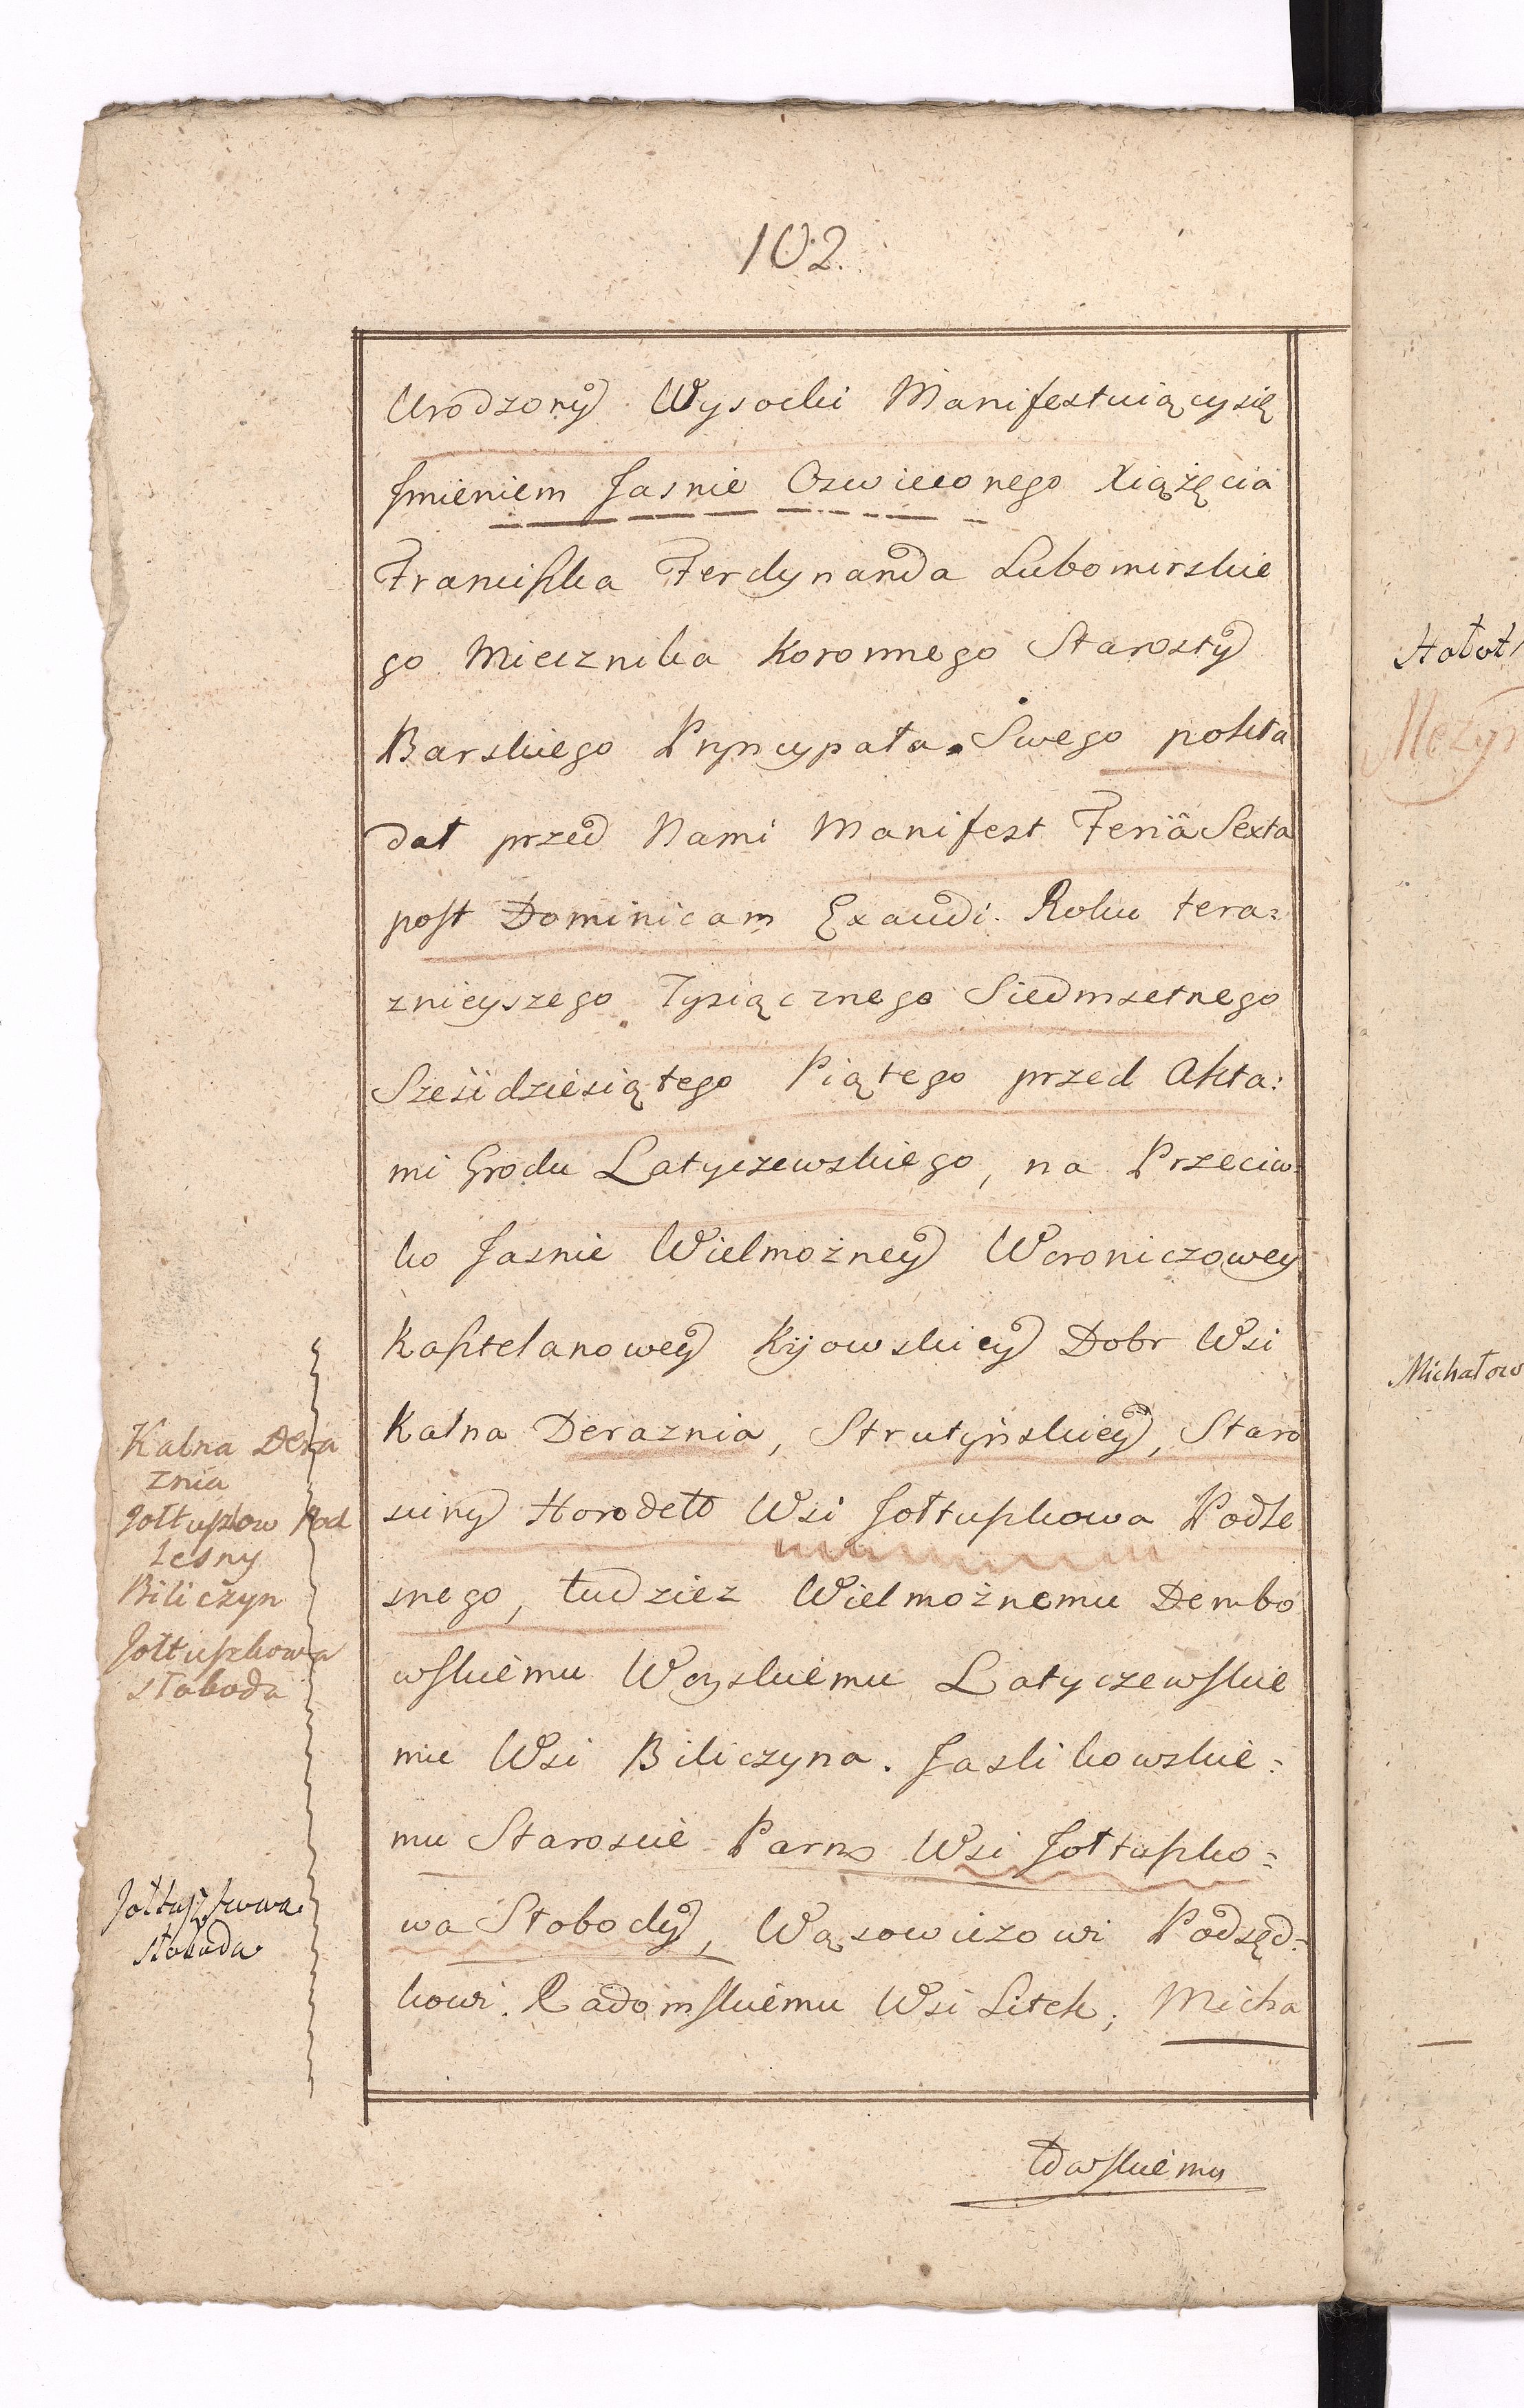 102.
Urodzony Wysocki Manifestuiącysię
Jmieniem Jasnie Oswieconego Xiążęcia
Franciszka Ferdynanda Lubomirskie
go Miecznika Koronnego Starosty
Barskiego Pryncypała Swego pokła
dał przed Nami Manifest Feriâ Sexta
post Dominicam Exaudi. Roku tera=
znieyszego Tysiącznego Siedmsetnego
Sześćdziesiątego Piątego przed Akta=
mi Grodu Latyczewskiego, na Przeciw=
ko Jasnie Wielmożney Woroniczowey
Kasztelanowey Kijowskiey Dobr Wsi
Kalna Deraznia, Strutyńskiey, Staro
sciny Horodeło Wsi Jołtuszkowa Podle
snego, tudziez Wielmożnemu Dembo
wskiemu Woyskiemu Latyczewskie
mu Wsi Biliczyna. Jaslikowskie=
mu Staroscie Parno Wsi Jołtuszko=
wa Słobody, Wąsowiczowi Podsęd=
kowi Radomskiemu Wsi Litek, Micha
łowskiemu
Kalna Dera
znia
Jołtuszkow Pod
lesny
Biliczyn
Jołtuszkowa
słoboda
Jołtuszkowa
słoboda
Hołot
Michałow